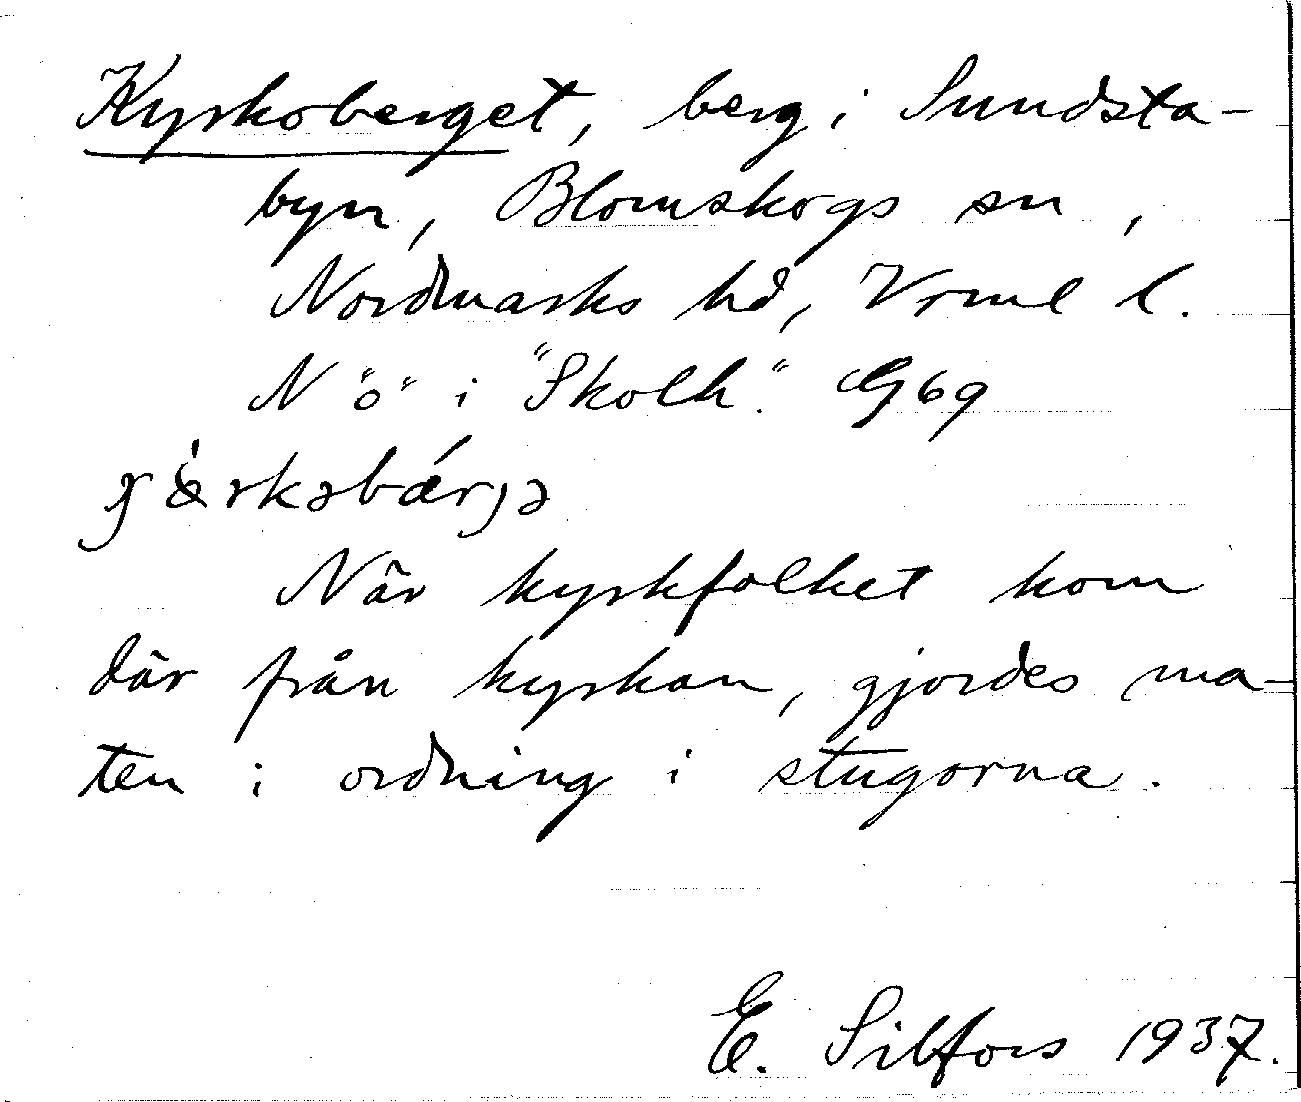 Kyrkoberget, berg i Sundsta-
byn, Blomskogs sn,
Nordmarks hd, Vrml l.
N "o" i "Skolh." G69
När kyrkfolket kom
där från kyrkan, gjordes ma-
ten i ordning i stugorna.
E. Silfors 1937.